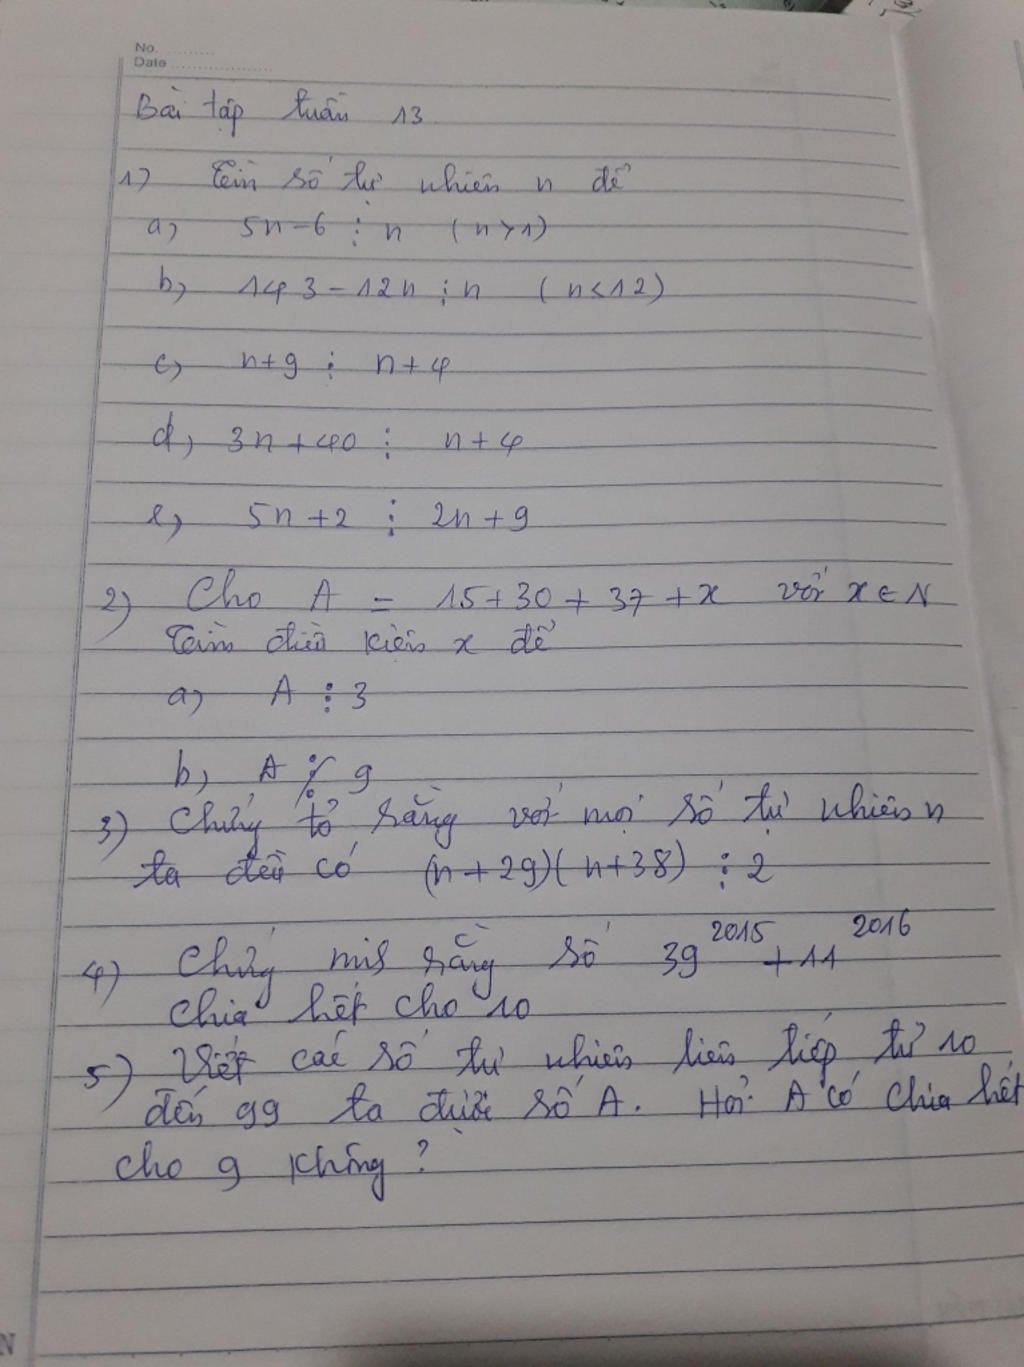 No. ............
Date ........................
Bài tập tuần 13
1) Tìm số tự nhiên n để
a, 5n-6 ⋮ n (n>1)
b, 143-12n ⋮ n (n<12)
c, n+9 ⋮ n+4
d, 3n+40 ⋮ n+4
e, 5n+2 ⋮ 2n+9
2) Cho A = 15+30+37+x với x∈N
Tìm điều kiện x để
a, A ⋮ 3
b, A ⋮̸ 9
3) Chứng tỏ rằng với mọi số tự nhiên n
ta đều có (n+29)(n+38) ⋮ 2
4) Chứng mis rằng số 39^2015 + 11^2016
chia hết cho 10
5) Viết các số tự nhiên liên tiếp từ 10
đến 99 ta được số A. Hỏi A có chia hết
cho 9 không?
N